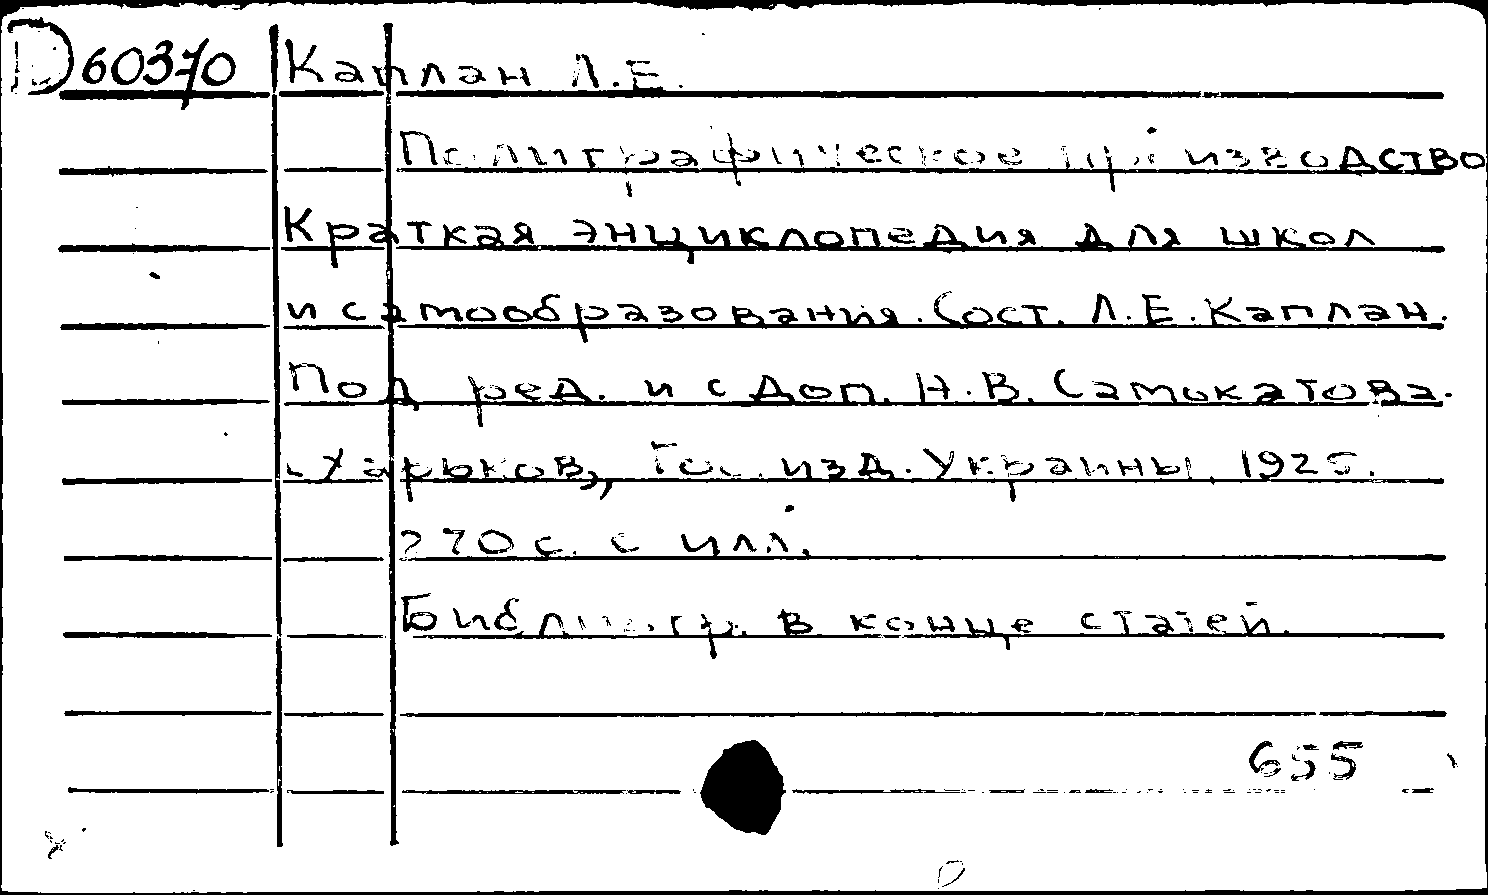 D60370 Каплан Л.Е.
Полиграфическое производство
Краткая энциклопедия для школ
и самообразования. Сост. Л.Е. Каплан.
Под ред. и с доп. Н.В. Самокатова.
Харьков, Гос. изд. Украины, 1925.
270 с. с илл.
Библиогр. в конце статей.
655